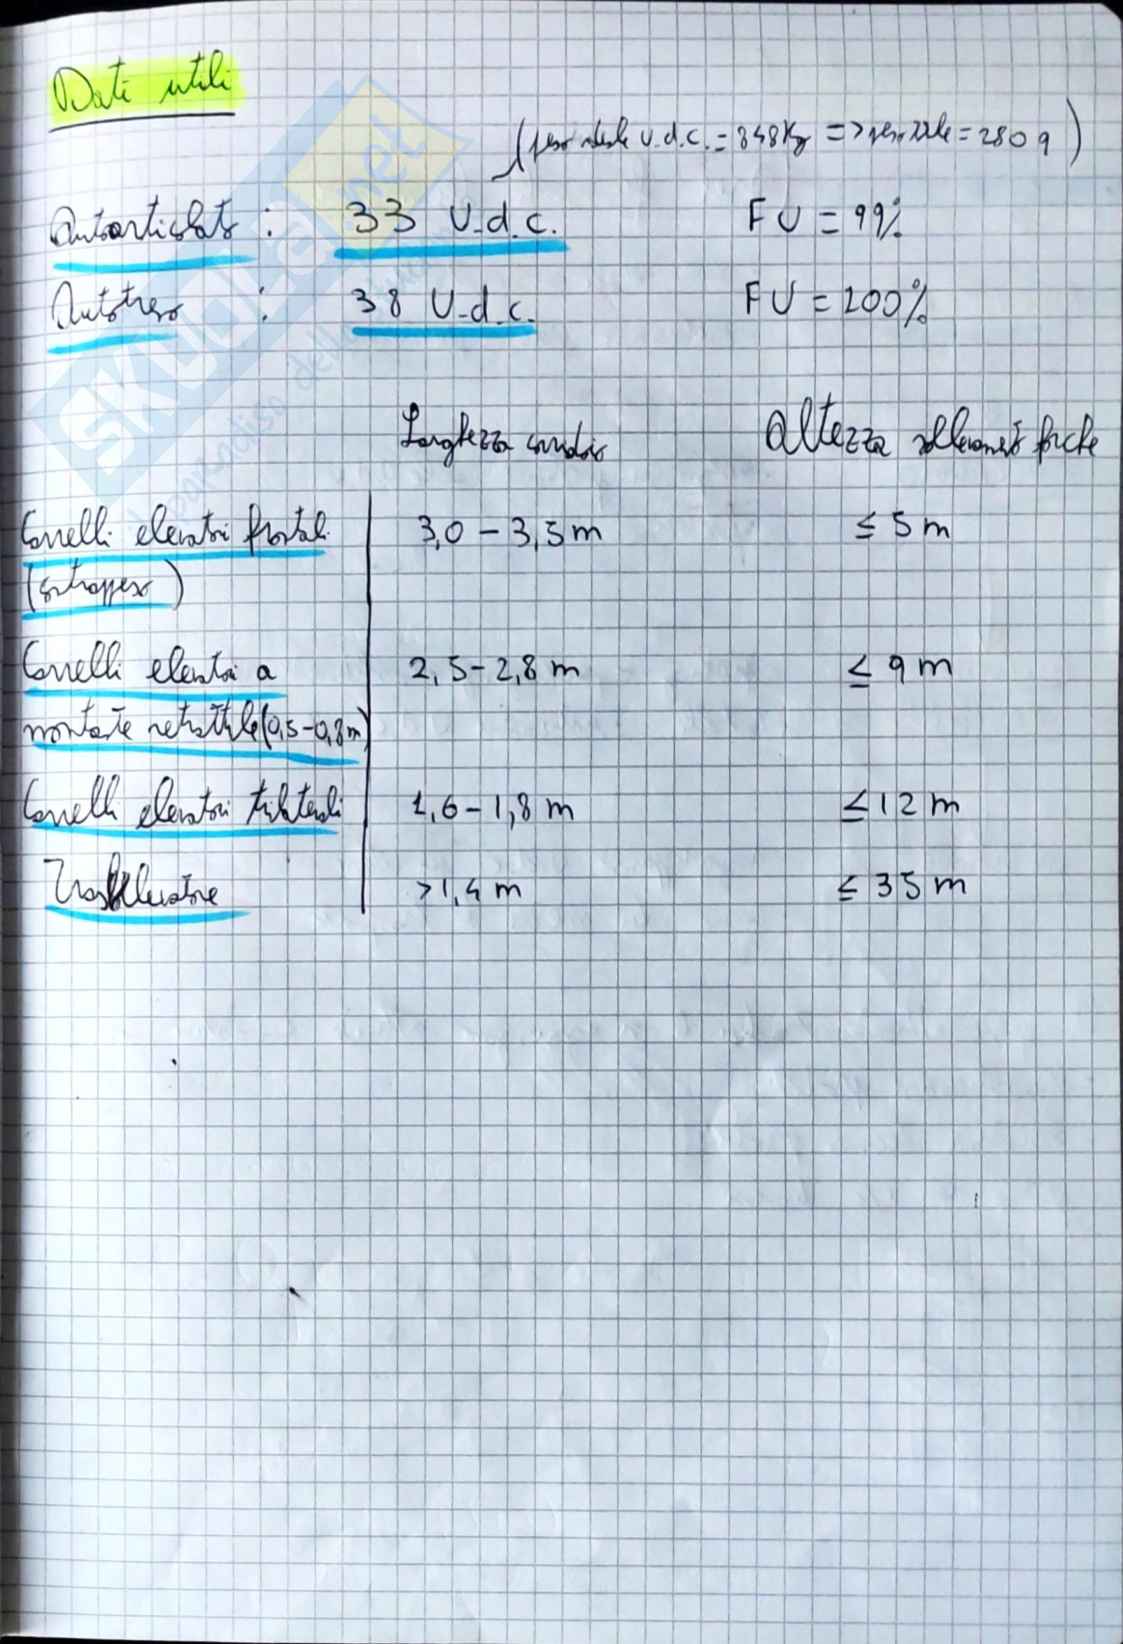 Dati utili
(peso ideale U.d.c. = 848 Kg => peso = 280 q)
Autoarticolato : 33 U.d.c. FU = 99%
Autotreno : 38 U.d.c. FU = 100%
Larghezza corridoio Altezza sollevamento forche
Carrelli elevatori frontali 3,0 - 3,5 m ≤ 5 m
Carrelli elevatori a 2,5 - 2,8 m ≤ 9 m
montante retrattile (0,5-0,8m)
Carrelli elevatori trilaterali 1,6 - 1,8 m ≤ 12 m
Trasloelevatore > 1,4 m ≤ 35 m
SKUOLA.net